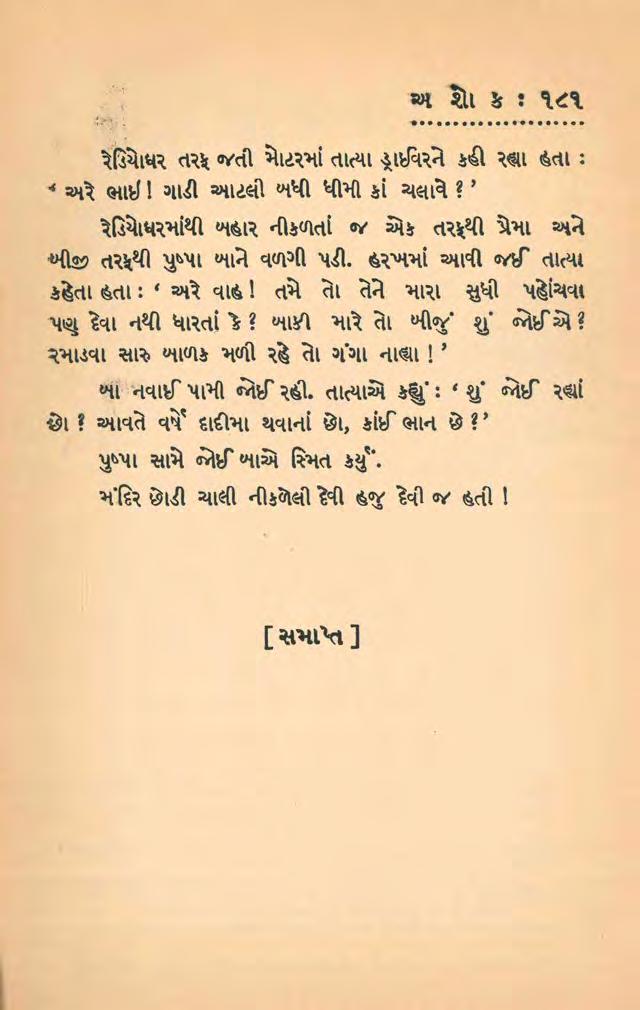 અ શો ક : ૧૮૧
રેડિયોઘર તરફ જતી મોટરમાં તાત્યા ડ્રાઈવરને કહી રહ્યા હતા :
‘ અરે ભાઈ! ગાડી આટલી બધી ધીમી કાં ચલાવે ? ’
રેડિયોઘરમાંથી બહાર નીકળતાં જ એક તરફથી પ્રેમા અને
બીજી તરફથી પુષ્પા બાને વળગી પડી. હરખમાં આવી જઈ તાત્યા
કહેતા હતા : ‘ અરે વાહ! તમે તો તેને મારા સુધી પહોંચવા
પણ દેવા નથી ધારતાં કે? બાકી મારે તો બીજું શું જોઈએ?
રમાડવા સારુ બાળક મળી રહે તો ગંગા નાહ્યા ! ’
બા નવાઈ પામી જોઈ રહી. તાત્યાએ કહ્યું : ‘ શું જોઈ રહ્યાં
છો ? આવતે વર્ષે દાદીમા થવાનાં છો, કાંઈ ભાન છે ?’
પુષ્પા સામે જોઈ બાએ સ્મિત કર્યું.
મંદિર છોડી ચાલી નીકળેલી દેવી હજુ દેવી જ હતી !
[ સમાપ્ત ]